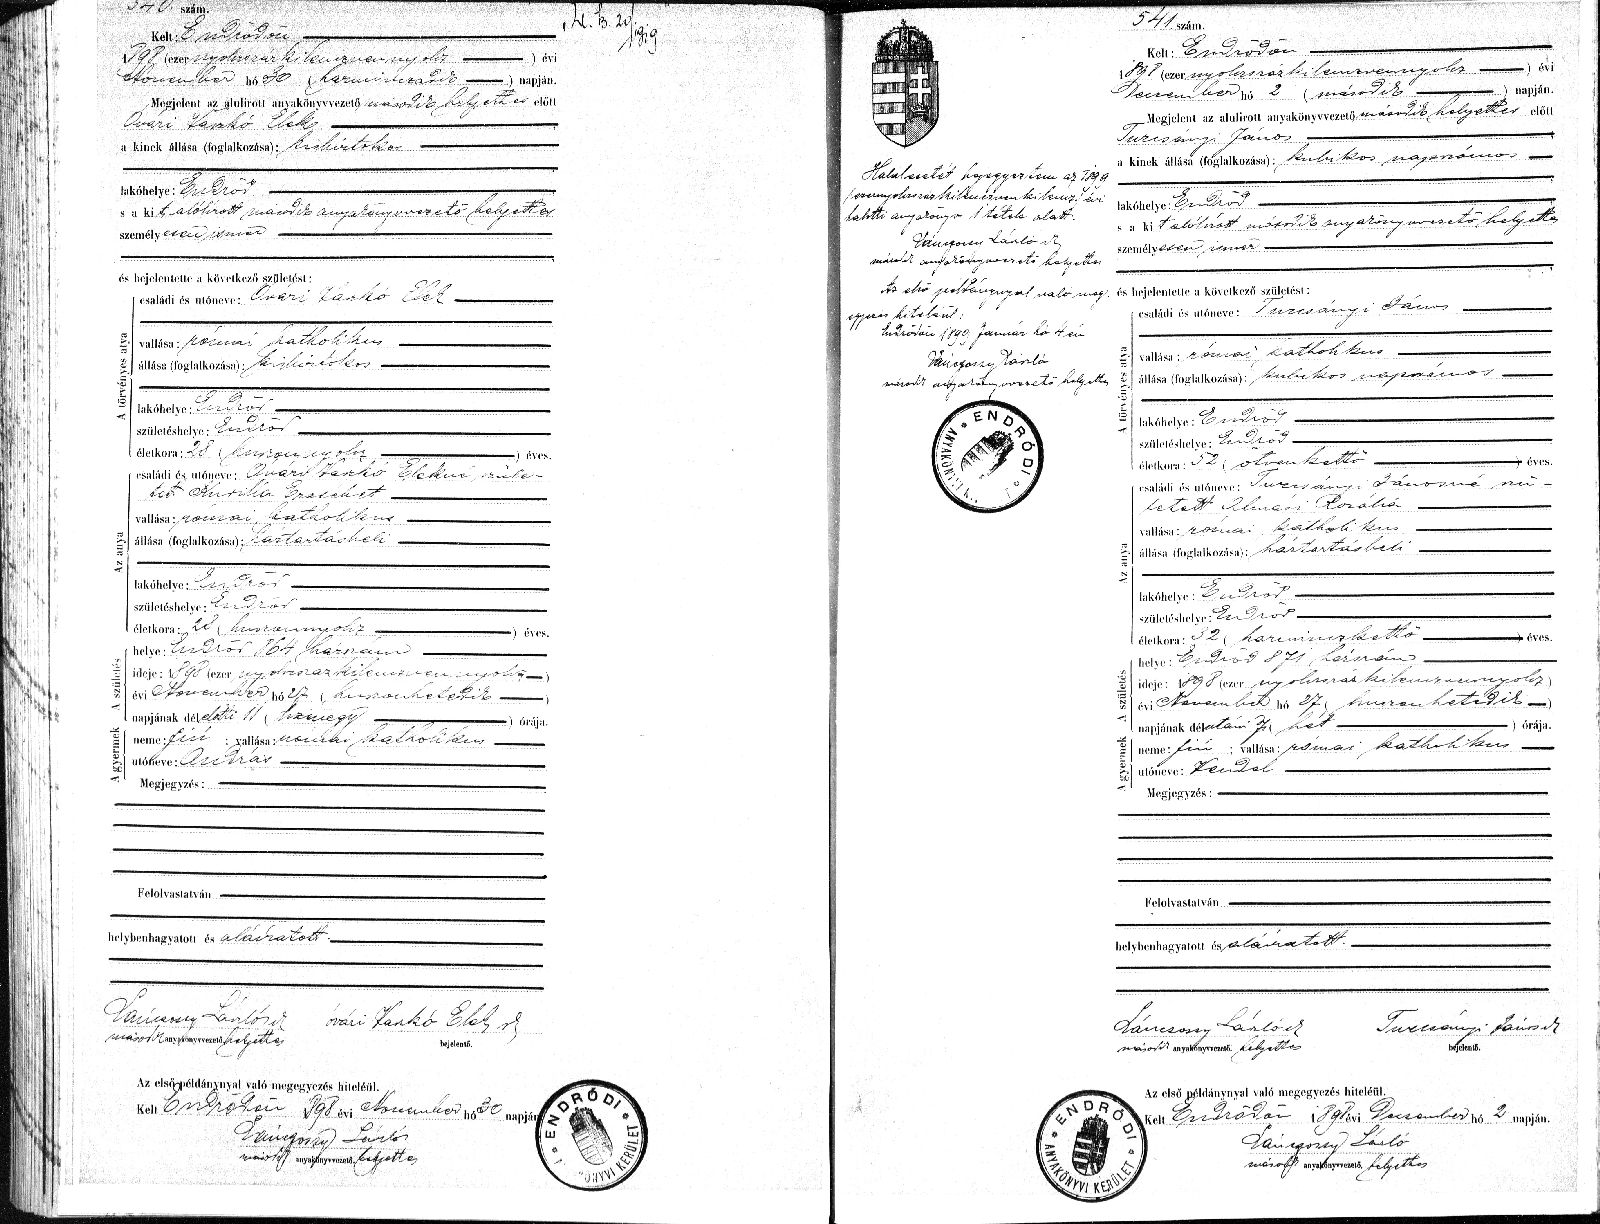 540. szám.
Kelt: Endrődön
1898 (ezer nyolcszázkilencvennyolc) évi
November hó 30 (harmincadik) napján.
Megjelent az alulirott anyakönyvvezető második helyettes előtt
Óvári Vaskó Elek
a kinek állása (foglalkozása): kisbirtokos
lakóhelye: Endrőd
s a kit alólírott második anyakönyvvezető helyettes
személyesen ismer
és bejelentette a következő születést:
A törvényes atya
családi és utóneve: Óvári Vaskó Elek
vallása: római katholikus
állása (foglalkozása): kisbirtokos
lakóhelye: Endrőd
születéshelye: Endrőd
életkora: 28 (huszonnyolc) éves.
Az anya
családi és utóneve: Óvári Vaskó Elekné szüle-
tett Erzsébet
vallása: római katholikus
állása (foglalkozása): háztartásbeli
lakóhelye: Endrőd
születéshelye: Endrőd
életkora: 28 (huszonnyolc) éves.
A születés
helye: Endrőd 864 házszám
ideje: 1898 (ezer nyolcszázkilencvennyolc)
évi November hó 27 (huszonhetedik)
napjának délelőtti 11 (tizenegy) órája.
A gyermek
neme: fiú; vallása: római katholikus
utóneve: András
Megjegyzés:
Felolvastatván
helybenhagyatott és aláíratott.
Láncsosy László sk óvári Vaskó Elek sk
második anyakönyvvezető helyettes bejelentő.
Az első példánynyal való megegyezés hiteléül.
Kelt Endrődön 1898 évi November hó 30 napján
László
második anyakönyvvezető helyettes
ENDRŐDI ANYAKÖNYVI KERÜLET
Halálesetét bejegyeztem az 1899
(ezernyolcszázkilencvenkilenc) évi
halotti anyakönyv 1 tétele alatt.
László sk
második anyakönyvvezető helyettes
Az első példánynyal való meg-
egyezés hiteléül:
Endrődön 1899 Január hó 4 én
László
második anyakönyvvezető helyettes
ENDRŐDI ANYAKÖNYVI
541 szám.
Kelt: Endrődön
1898 (ezer nyolcszázkilencvennyolc) évi
December hó 2 (második) napján.
Megjelent az alulirott anyakönyvvezető második helyettes előtt
Turcsányi János
a kinek állása (foglalkozása): kubikos napszámos
lakóhelye: Endrőd
s a kit alólírott második anyakönyvvezető helyettes
személyesen ismer
és bejelentette a következő születést:
A törvényes atya
családi és utóneve: Turcsányi János
vallása: római katholikus
állása (foglalkozása): kubikos napszámos
lakóhelye: Endrőd
születéshelye: Endrőd
életkora: 52 (ötvenkettő) éves.
Az anya
családi és utóneve: Turcsányi Jánosné szü-
letett Almási Rozália
vallása: római katholikus
állása (foglalkozása): háztartásbeli
lakóhelye: Endrőd
születéshelye: Endrőd
életkora: 32 (harminczkettő) éves.
A születés
helye: Endrőd 871 házszám
ideje: 1898 (ezer nyolcszázkilencvennyolc)
évi November hó 27 (huszonhetedik)
napjának délutáni 7 (hét) órája.
A gyermek
neme: fiú; vallása: római katholikus
utóneve: Vendel
Megjegyzés:
Felolvastatván
helybenhagyatott és aláíratott.
Láncsosy László sk Turcsányi János sk
második anyakönyvvezető. helyettes bejelentő.
Az első példánynyal való megegyezés hiteléül.
Kelt Endrődön 1898 évi December hó 2 napján.
László
második anyakönyvvezető. helyettes
ENDRŐDI ANYAKÖNYVI KERÜLET